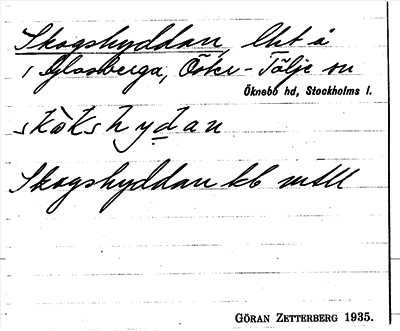 Skogshyddan, lht å
1 Glasberga, Öster-Tälje sn
Öknebo hd, Stockholms l.
skòkshydan
Skogshyddan kb
GÖRAN ZETTERBERG 1935.